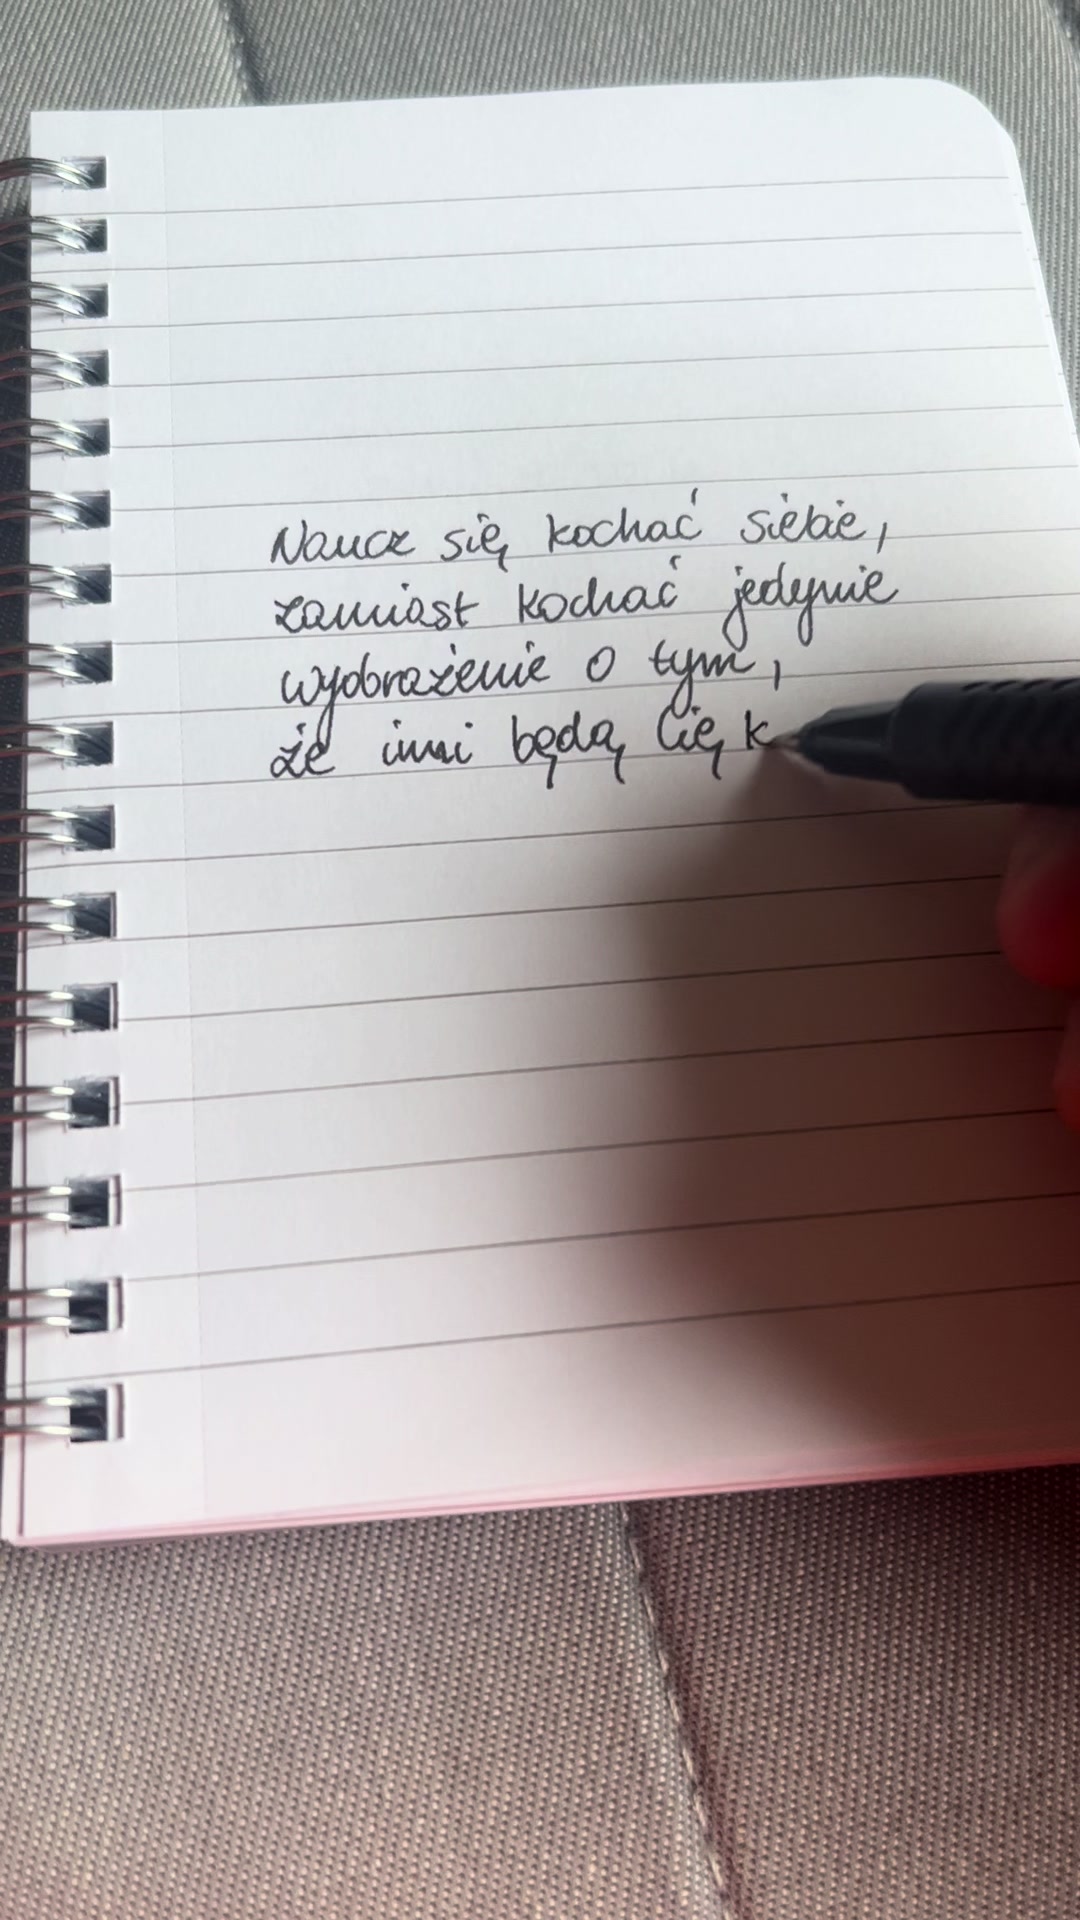 Naucz się kochać siebie,
zamiast kochać jedynie
wyobrażenie o tym,
że inni będą Cię k